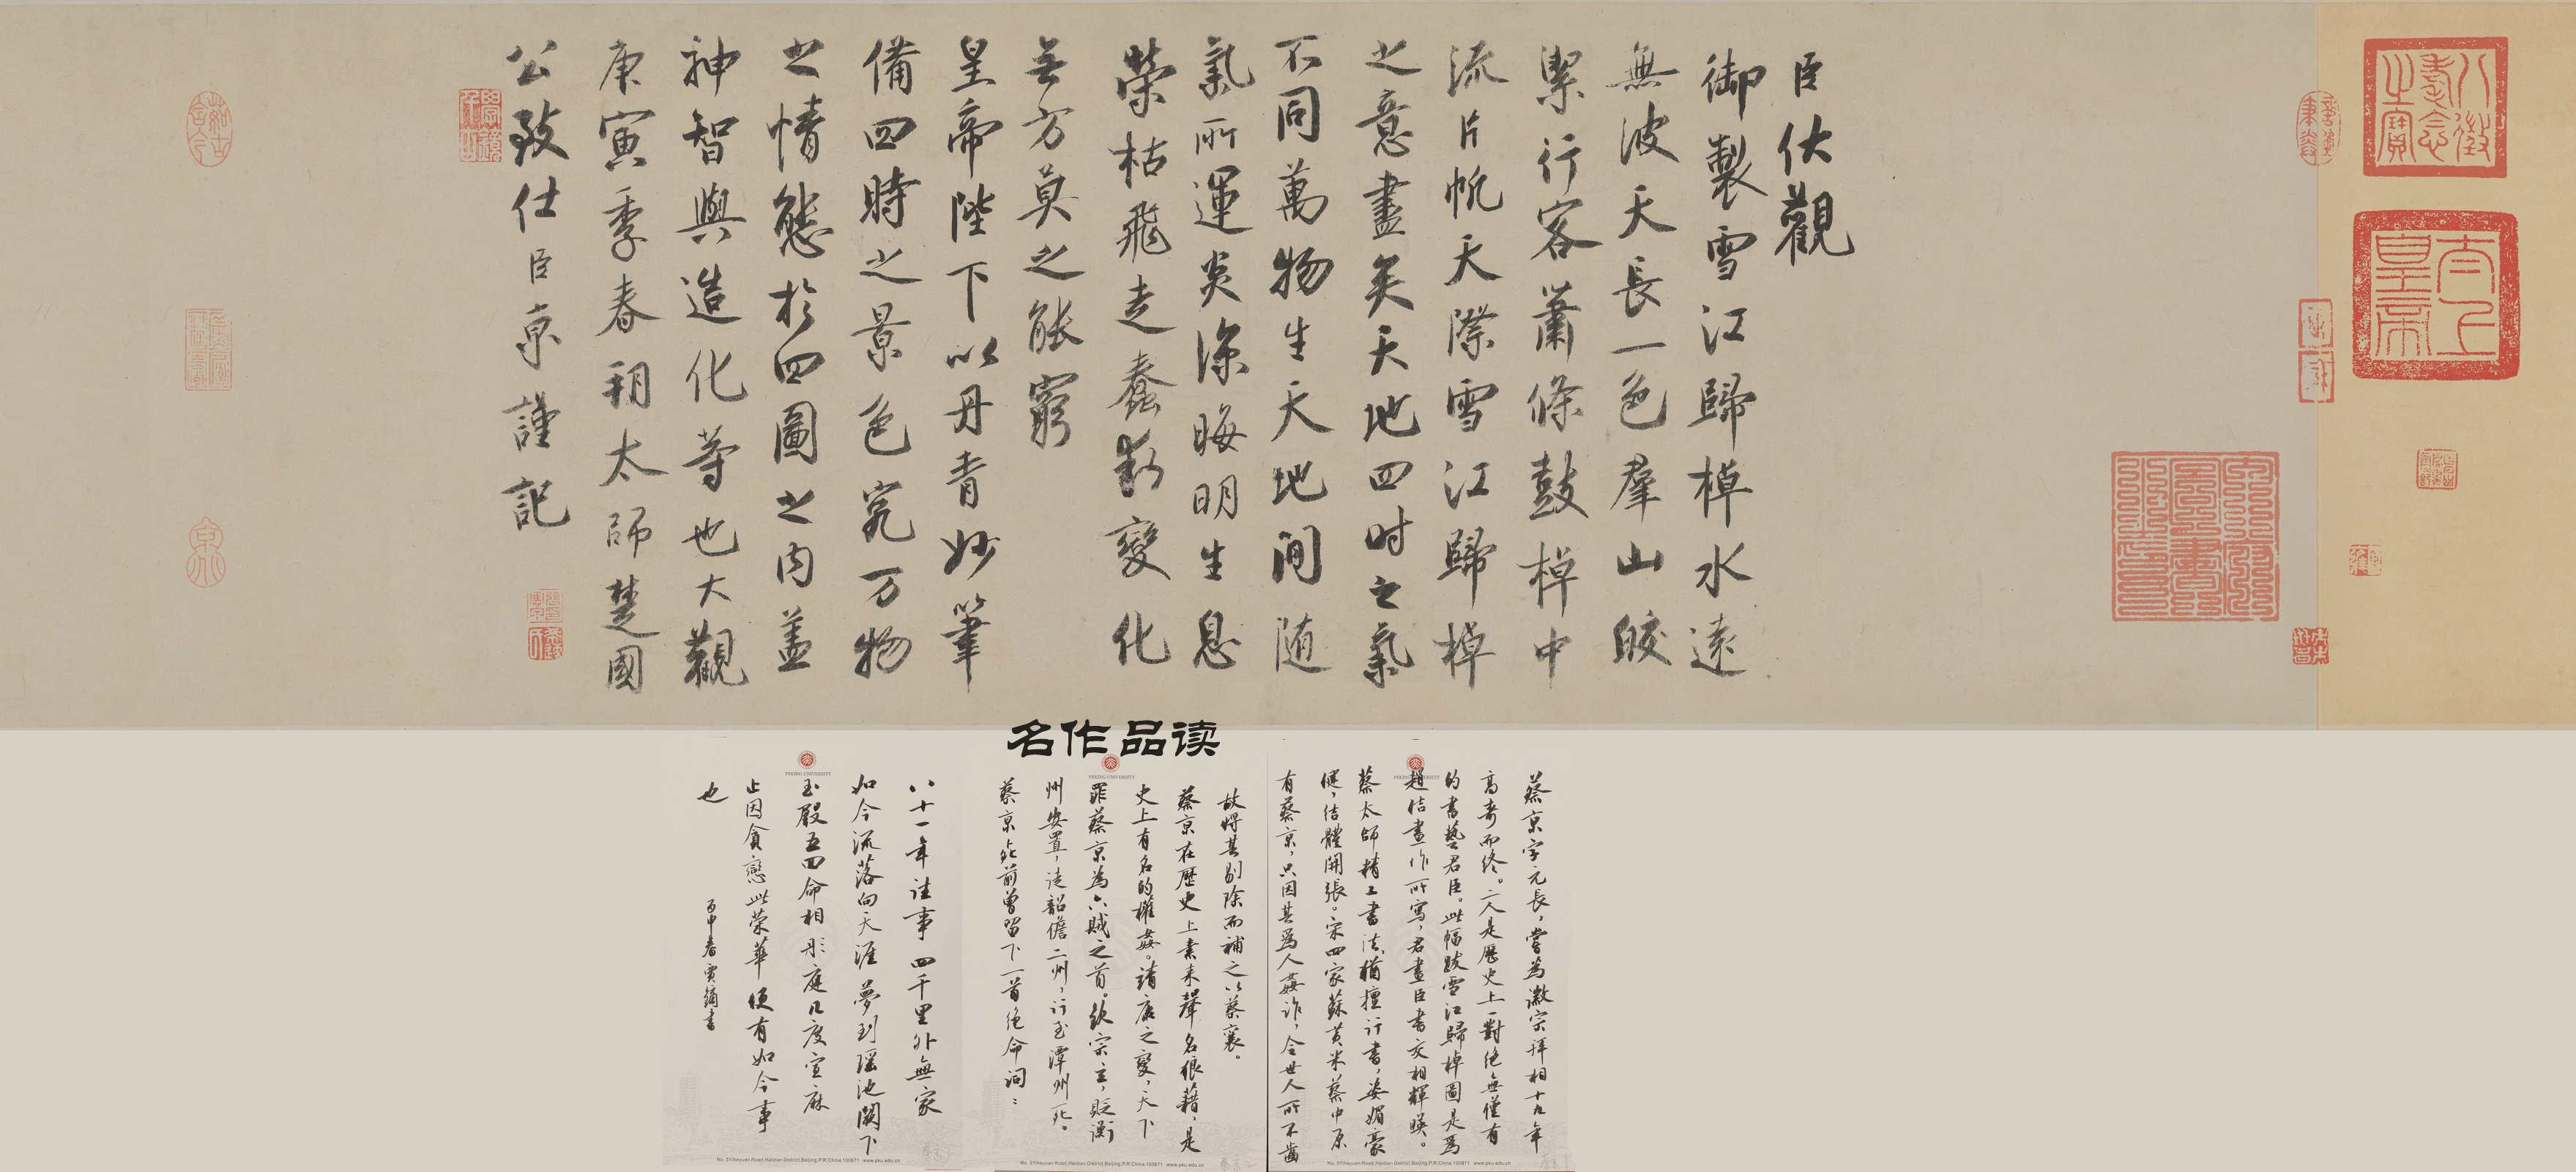 臣伏觀
御製雪江歸棹水遠
無波天長一色羣山皎
潔行客蕭條鼓棹中
流片帆天際雪江歸棹
之意盡矣天地四時之氣
不同萬物生天地間随
氣所運炎涼晦明生息
榮枯飛走蠢動變化
無方莫之能窮
皇帝陛下以丹青妙筆
備四時之景色究万物
之情態於四圖之内盖
神智與造化等也大觀
庚寅季春朔太師楚國
公致仕臣京謹記
八徵耄念之寶
太上皇帝
名作品读
PEKING UNIVERSITY
蔡京字元長，嘗為徽宗拜相十九年
高壽而終。二人是歷史上一對絕無僅有
的書藝君臣。此幅跋雪江歸棹圖是為
趙佶畫作所寫，君畫臣書交相輝暎。
蔡太師精工書法，猶擅行書，姿媚豪
健，结體開張。宋四家蘇黄米蔡中原
有蔡京，只因其爲人姦詐，令世人所不齒
No. 5Yiheyuan Road,Haidian District,Beijing,P.R.China 100871 www.pku.edu.cn
PEKING UNIVERSITY
故將其剔除而補之以蔡襄。
蔡京在歷史上素来聲名狼藉，是
史上有名的權姦。靖康之變，天下
罪蔡京為六賊之首。欽宗立，貶衡
州安置，徒韶儋二州，行至潭州死。
蔡京死前曾留下一首绝命词：
No. 5Yiheyuan Road,Haidian District,Beijing,P.R.China 100871 www.pku.edu.cn
PEKING UNIVERSITY
八十一年往事四千里外無家
如今流落向天涯夢到瑶池闕下
玉殿五四命相彤庭几度宣麻
止因貪戀此荣華便有如今事
也
丙申春
No. 5Yiheyuan Road,Haidian District,Beijing,P.R.China 100871 www.pku.edu.cn